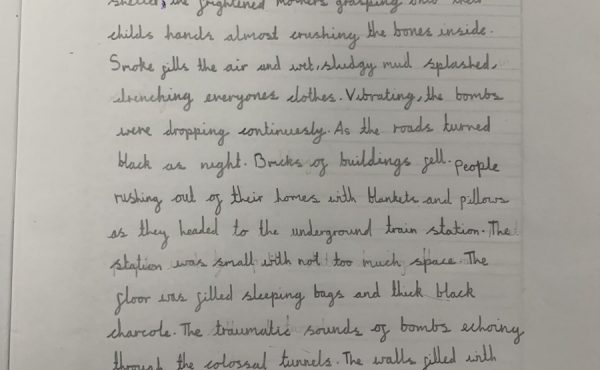 shelter, the frightened mothers grasping onto their
childs hands almost crushing the bones inside.
Smoke fills the air and wet, sludgy mud splashed,
drenching everyones clothes. Vibrating, the bombs
were dropping continuesly. As the roads turned
black as night. Bricks of buildings fell. People
rushing out of their homes with blankets and pillows
as they headed to the underground train station. The
station was small with not too much space. The
floor was filled sleeping bags and thick black
charcole. The traumatic sounds of bombs echoing
through the colossal tunnels. The walls filled with